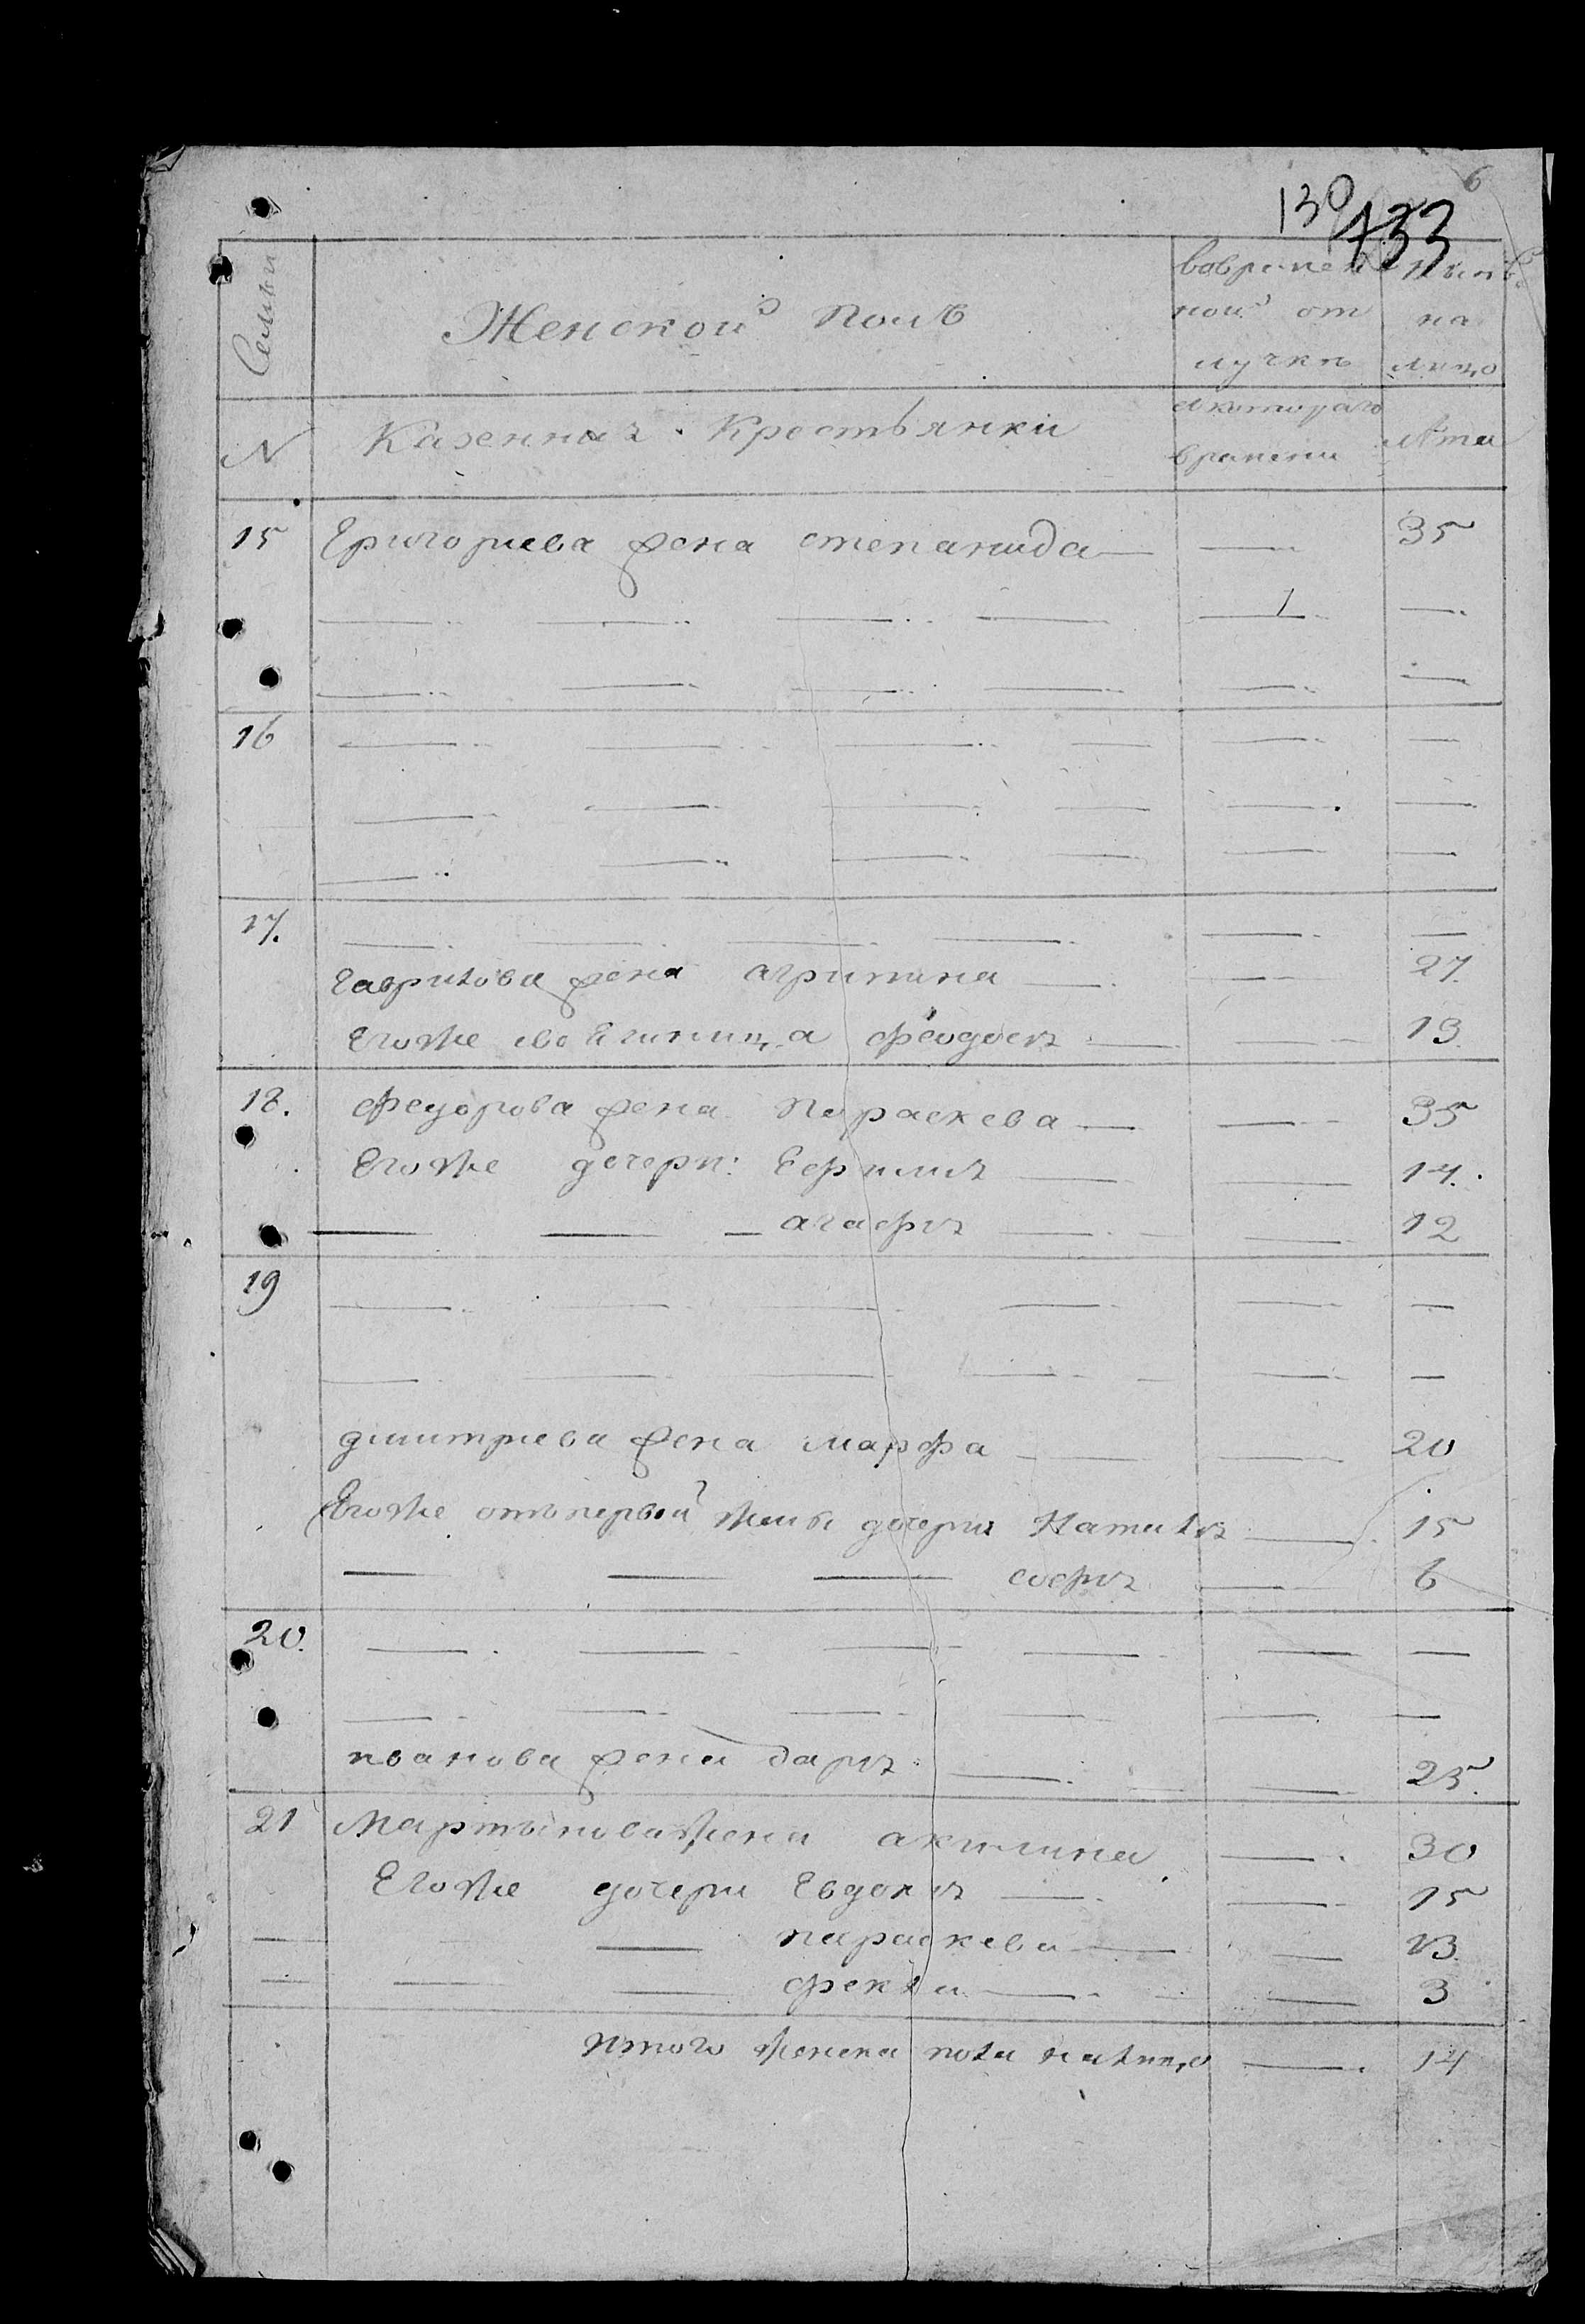 6
130
133
Семьи
Женской полъ
вовремен
ной от
лучкѣ
Нынѣ
на
лицо
N
Казенныя Крестьянки
с котораго
времени
лѣта
15 Григорьева жена степанида 35
16
17.
Гаврилова жена агрипина 27
Егоже своячиница феодосья 13
18. Федорова жена Параскева 35
Егоже дочери: Ефимия 14.
агафия 12
19
дмитриева жена марфа 20
Егоже отъ первый жены дочери Наталья 15
софия 6
20.
иванова жена дарья 25.
21 Мартынова жена акилина 30
Егоже дочери Евдокия 15
параскева 13
фекла 3
Итого женска пола налицо 14